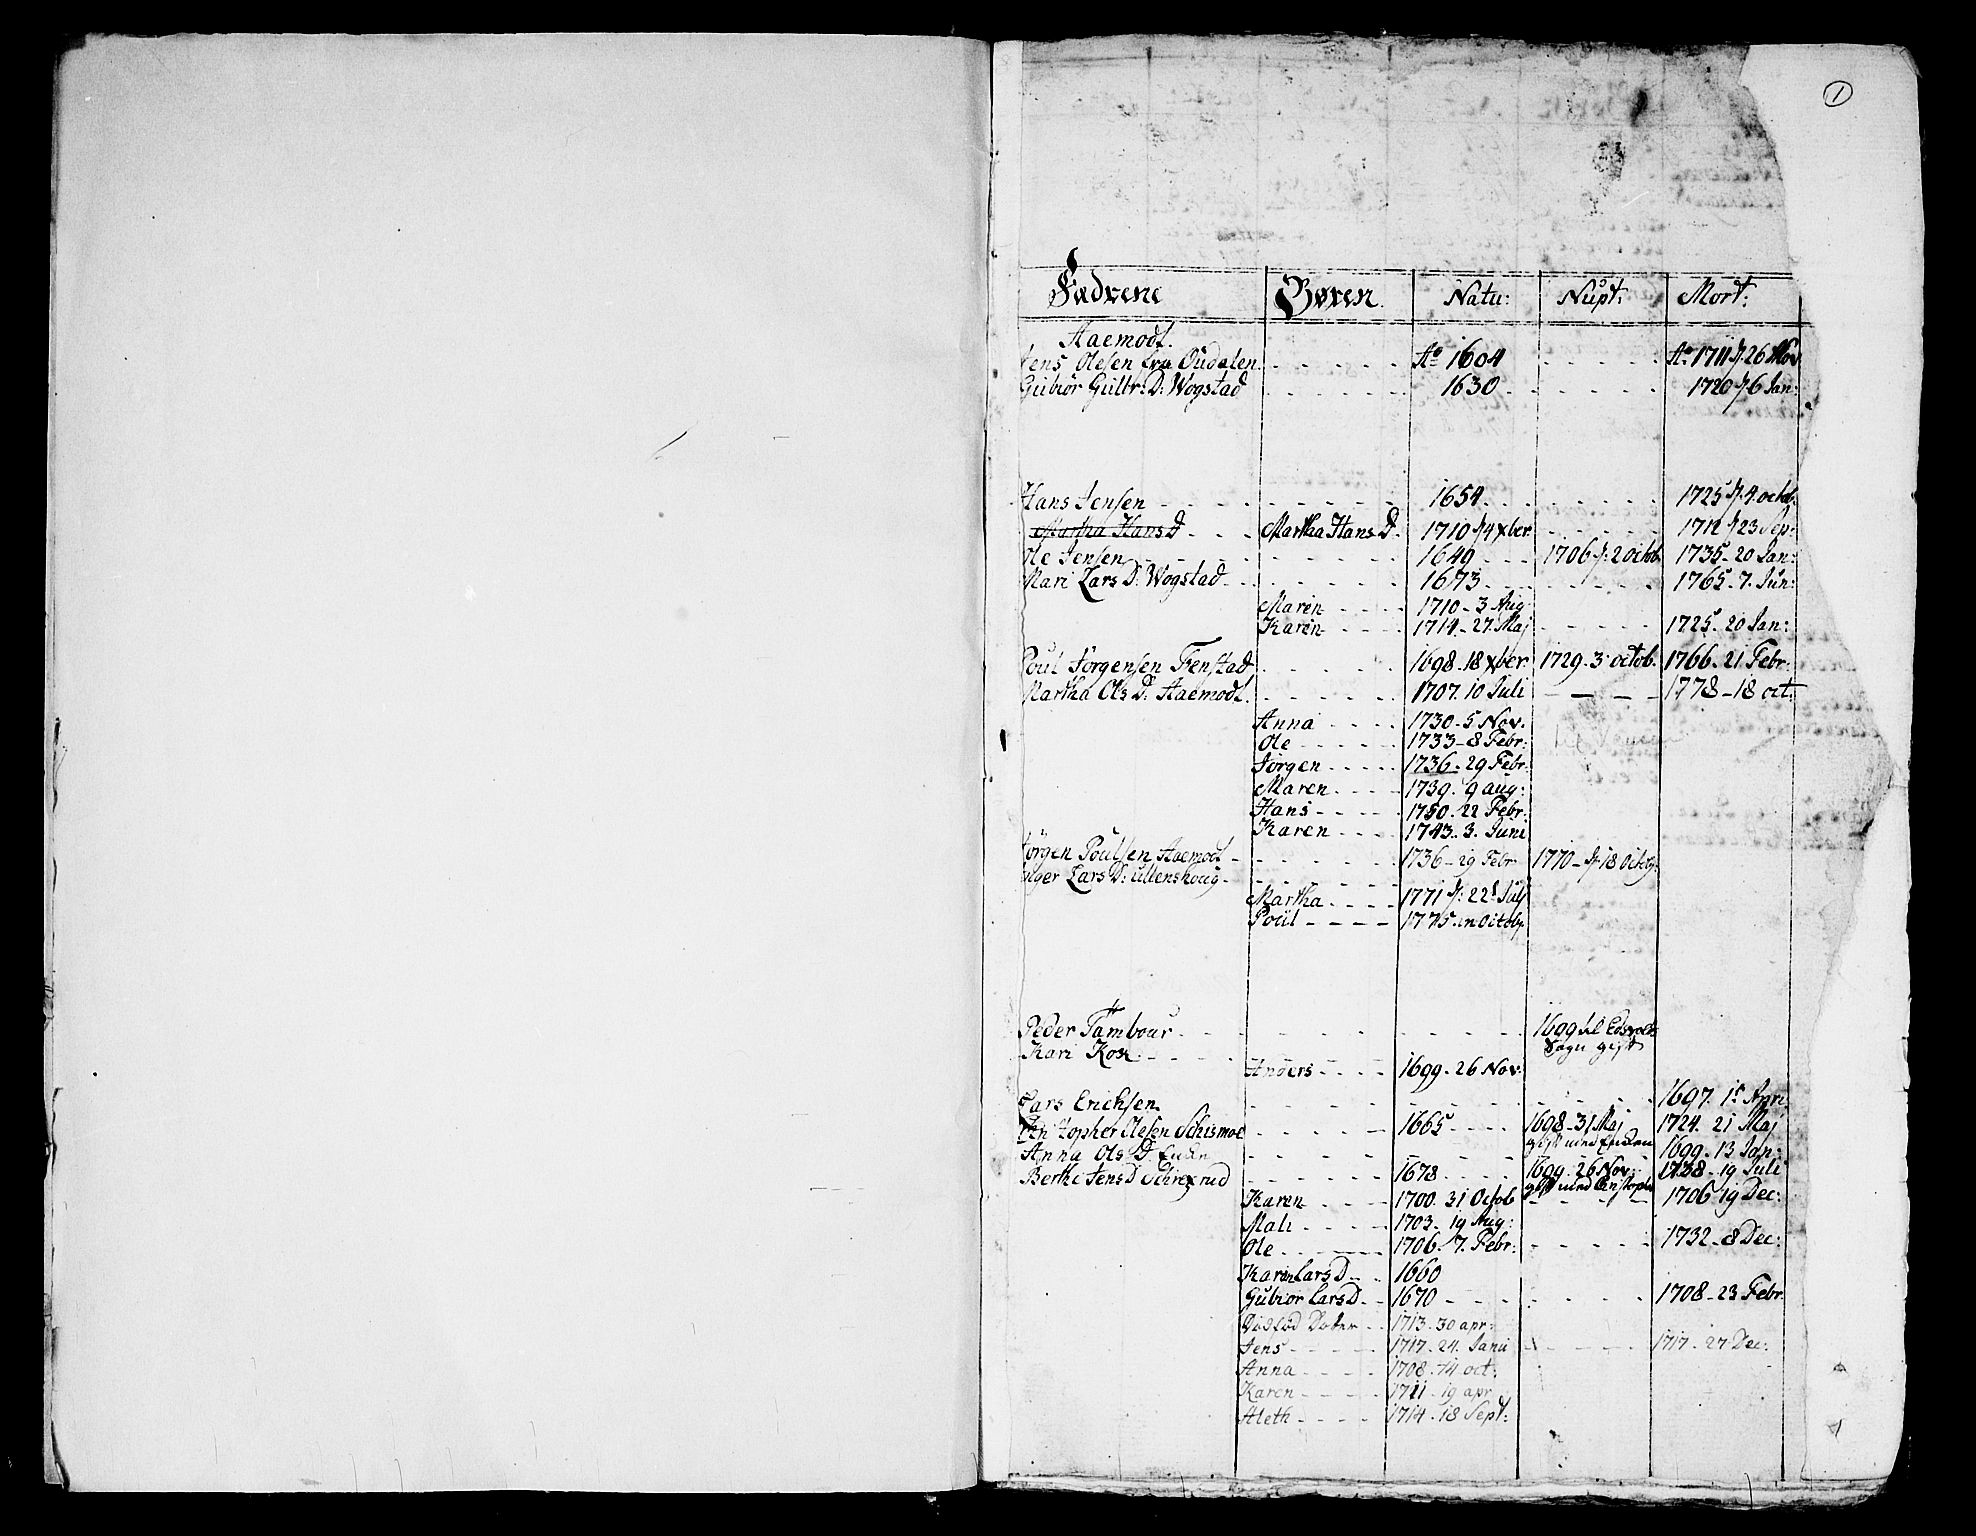 1
Fædrene Børen Natu: Nupt: Mort:
Aaemodt.
Jens Olesen fra Oudalen Ao 1604 Ao 1711 d. 26 Nov
Gubiør Gulbr: D: Wogstad 1630 1720 d. 6 Jan:
Hans Jensen 1654 1725 d. 4 octob.
Martha Hans D Martha Hans D. 1710 d. 4 xber 1712 d. 23 Sep:
Ole Jensen 1649 1706 d. 2 Octob 1735 - 20 Jan:
Mari Lars D: Wogstad 1673 1765 - 7. Jun:
Maren 1710 - 3 Aug
Karen 1714 - 27. Maj 1725. 20 Jan:
Poul Jørgensen Fenstad 1698 - 18 xber 1729. 3 octob. 1766. 21 Febr:
Martha Ols D: Aaemodt. 1707. 10 Juli 1778 - 18 oct:
Anna 1730 - 5 Nov.
Ole 1733 - 8 Febr:
Jørgen 1736 - 29 Febr:
Maren 1739. 9 aug:
Hans 1750. 22 Febr:
Karen 1743. 3. Juni
Jørgen Poulsen Aaemodt 1736 - 19 Febr 1770 - d. 18 Octob:
Inger Lars D: ullenshoug
Martha 1771 d: 22 Julj
Poul 1775. in Octob.
Peder Tambour 1699 til Edsvolds
Kari Kok Sogn gift
Anders 1699. 26 Nov.
Lars Erichsen 1697. 15 Apri
Christopher Olesen Schismoe 1665 1698 - 31 Maj 1724. 21 Maj
gift med Enken
Anna Ols D. Enke 1699. 13 Jan:
Berthe Jens D 1678 1699. 26 Nov: 1738 - 19 Juli
gift med Christopher
Karen 1700. 31 Octob 1706 19 Dec:
Mali 1703. 19 Aug:
Ole 1706. 7. Febr: 1732 - 8 Dec:
Karen Lars D 1660
Gubiør Lars D 1670 1708 - 23 Febr.
1713. 30 apr:
Jens 1717. 24. Janu 1717. 27 Dec:
Anna 1708. 14 oct:
Karen 1711 - 19 apr
Aleth 1714. 18 Sept: